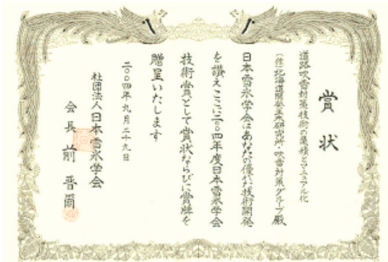 賞状
道路吹雪対策技術の集積とマニュアル化
(独)北海道開発土木研究所 吹雪対策グループ 殿
日本雪氷学会はあなたの優れた技術開発
を讃えここに二〇〇四年度日本雪氷学会
技術賞として賞状ならびに賞牌を
贈呈いたします
二〇〇四年九月二十九日
社団法人日本雪氷学会
会長 前 晋爾